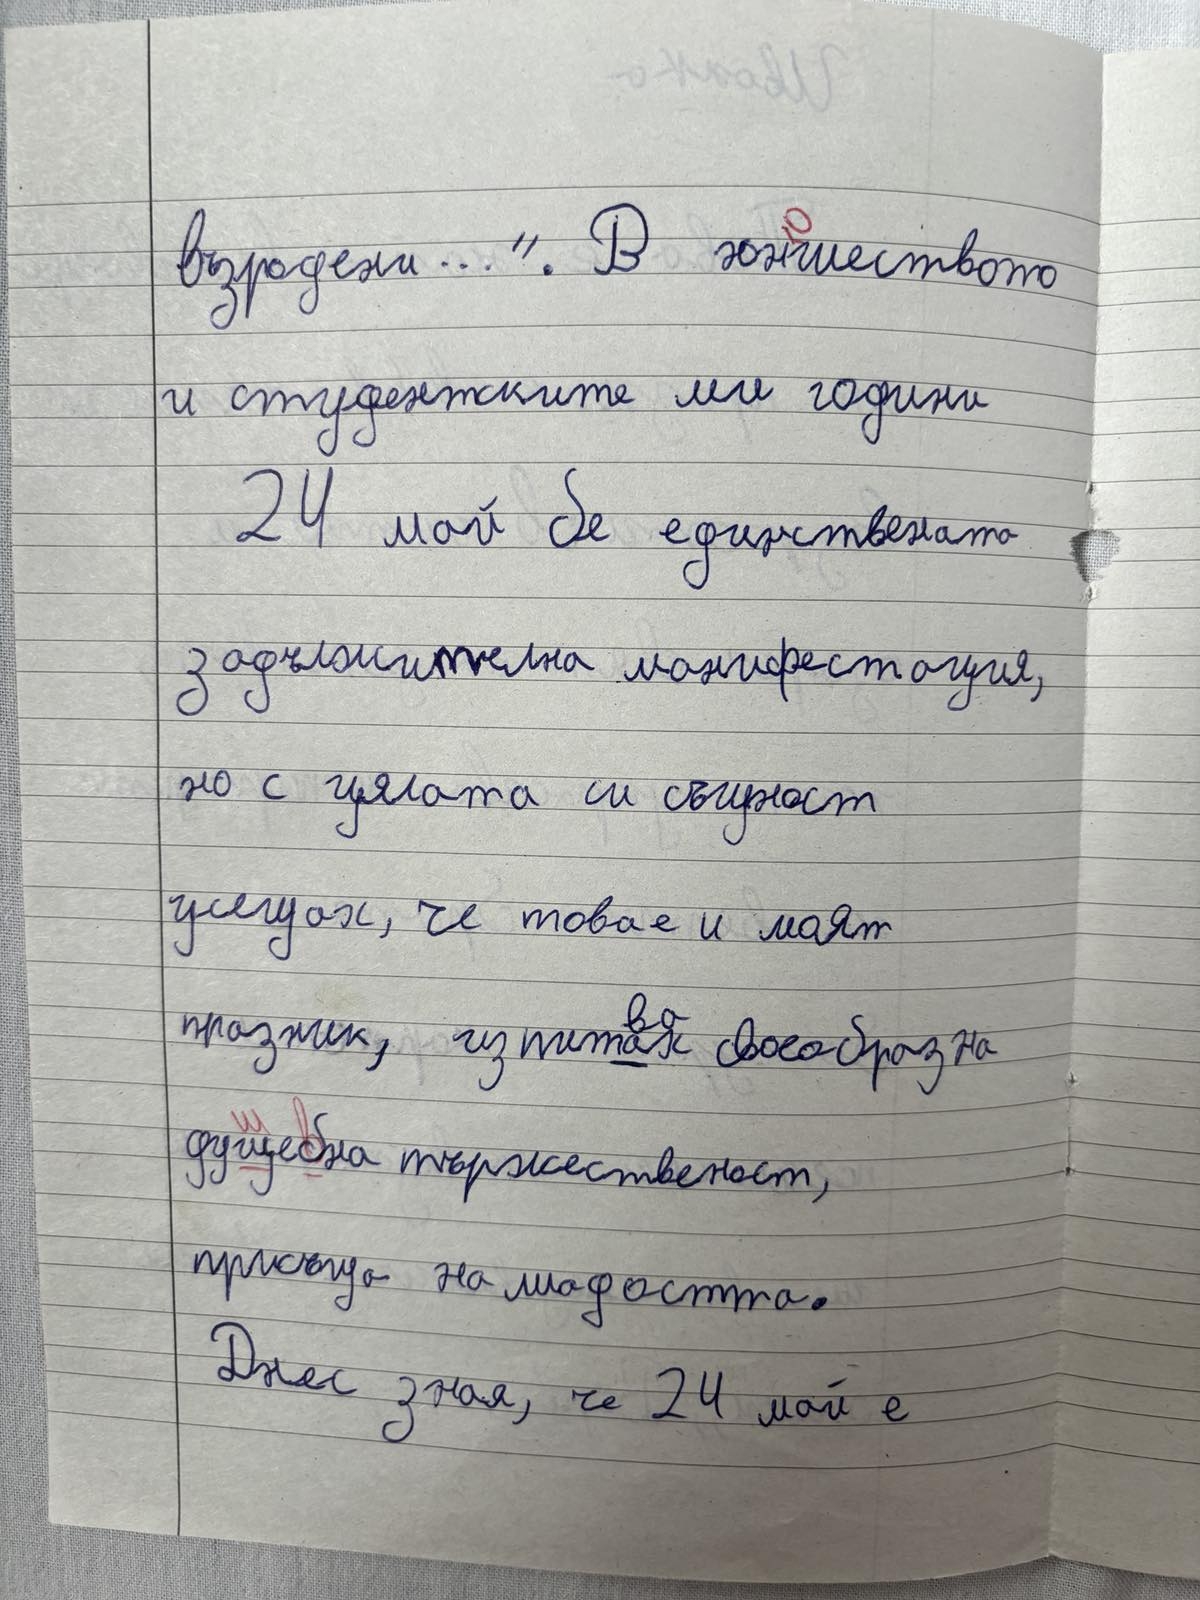 възродени...". В юншеството
и студентските ми години
24 май бе единствената
задължителна манифестация,
но с цялата си същност
усещах, че това е и моят
празник, изпитвах своеобразна
душевна тържественост,
присъща на младостта.
Днес зная, че 24 май е